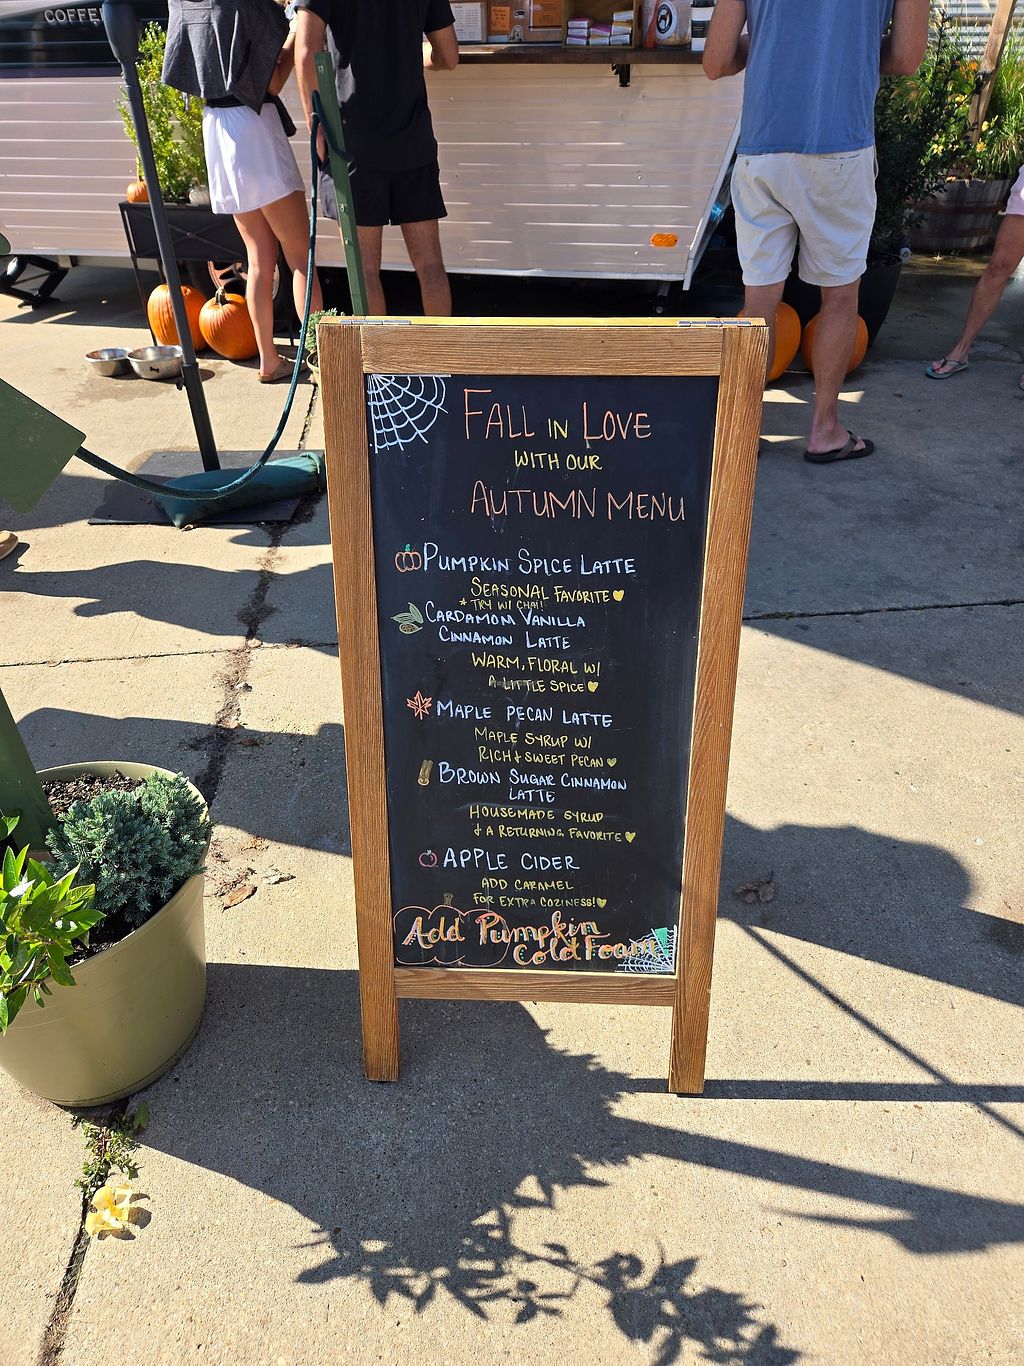 COFFEE
FALL IN LOVE
WITH OUR
AUTUMN MENU
PUMPKIN SPICE LATTE
SEASONAL FAVORITE
* TRY W/ CHAI!
CARDAMOM VANILLA
CINNAMON LATTE
WARM, FLORAL W/
A LITTLE SPICE
MAPLE PECAN LATTE
MAPLE SYRUP W/
RICH & SWEET PECAN
BROWN SUGAR CINNAMON
LATTE
HOUSEMADE SYRUP
& A RETURNING FAVORITE
APPLE CIDER
ADD CARAMEL
FOR EXTRA COZINESS!
Add Pumpkin
Cold Foam